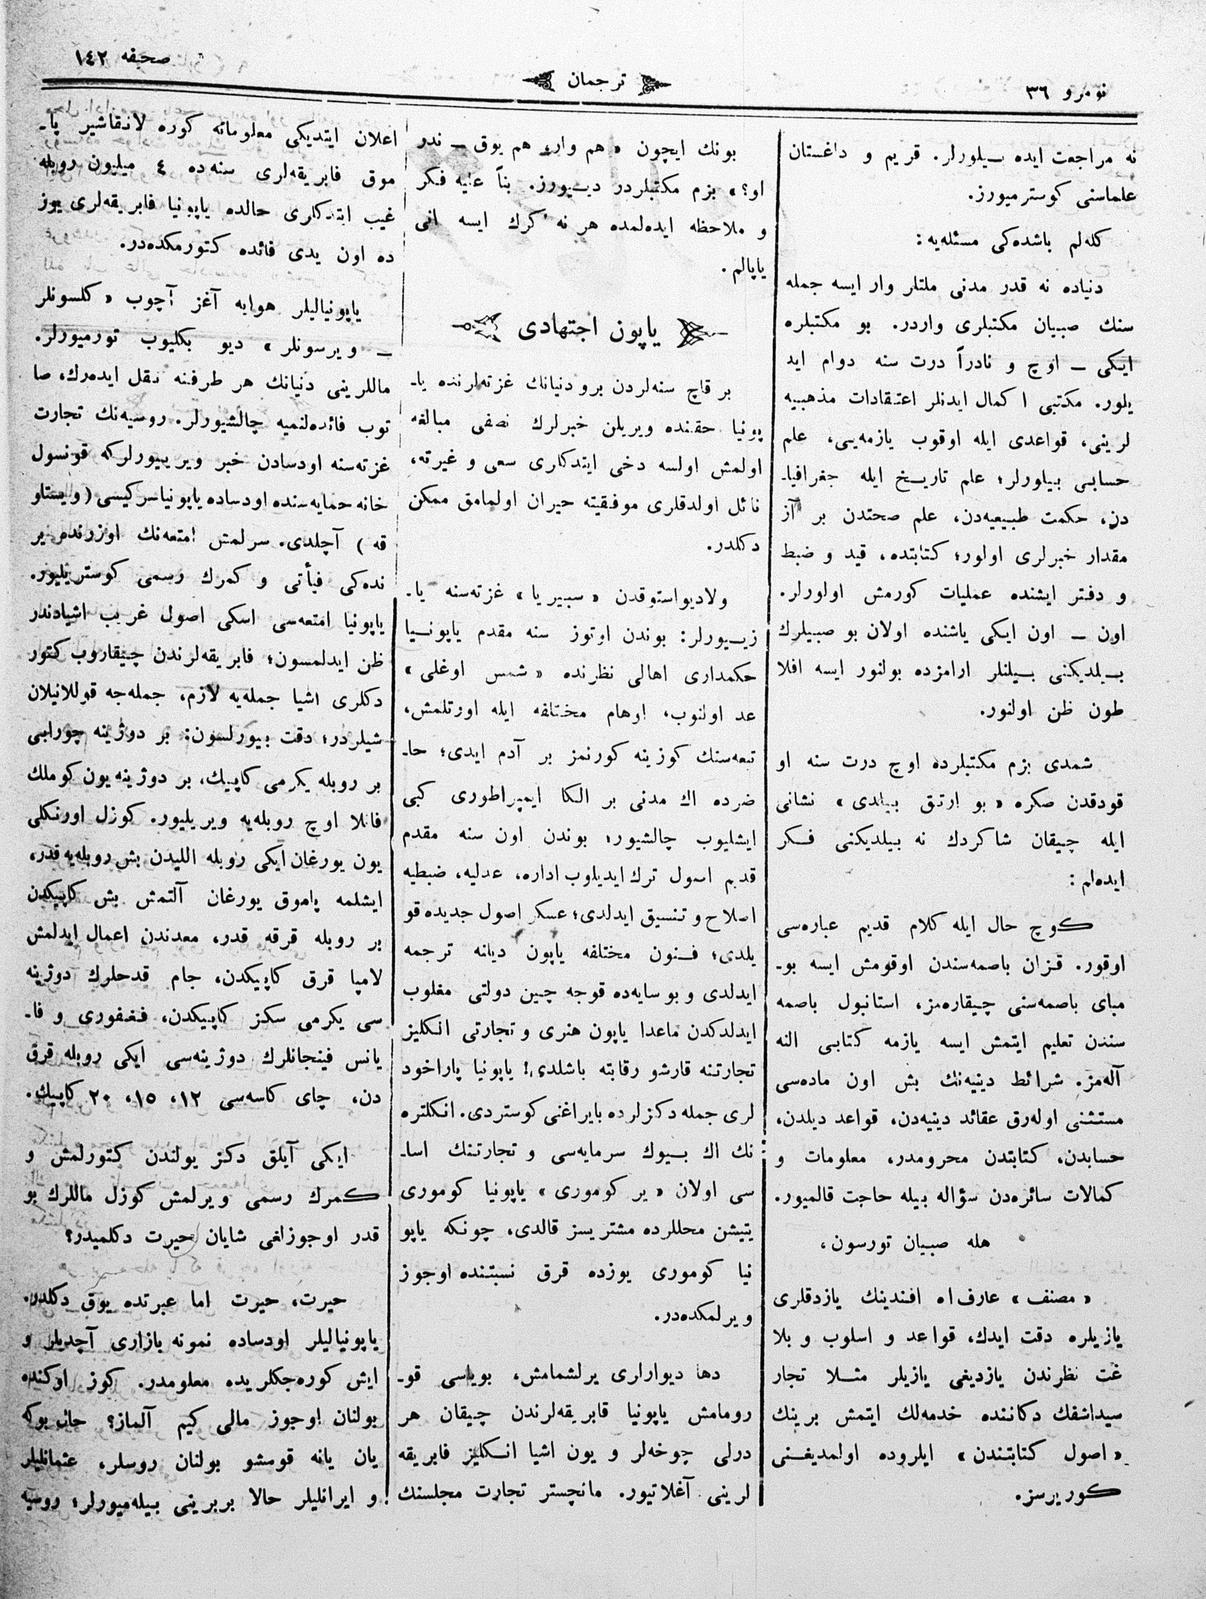 نومرو ٣٦
ترجمان
صحیفه ١٤٢
نه مراجعت ایده بیلورلر. قریم و داغستان
علماسنی کوسترمیورز.
کله‌لم باشده‌کی مسئله‌یه :
دنیاده نه قدر مدنی ملتلر وار ایسه جمله
سنك صبیان مکتبلری واردر. بو مکتبلره
ایکی ــ اوچ و نادراً درت سنه دوام اید
یلور. مکتبی اکمال ایدنلر اعتقادات مذهبیه
لرینی، قواعدی ایله اوقوب یازمه‌یی، علم
حسابی بیلورلر؛ علم تاریخ ایله جغرافیا-
دن، حکمت طبیعیه‌دن، علم صحتدن بر آز
مقدار خبرلری اولور؛ کتابتده، قید و ضبط
و دفتر ایشنده عملیات کورمش اولورلر.
اون ــ اون ایکی یاشنده اولان بو صبیلرك
بیلدیکنی بیلنلر ارامزده بولنور ایسه افلا
طون ظن اولنور.
شمدی بزم مکتبلرده اوچ درت سنه او
قودقدن صکره « بو ارتق بیلدی » نشانی
ایله چیقان شاکردك نه بیلدیکنی فکر
ایده‌لم :
کوچ حال ایله کلام قدیم عباره‌سی
اوقور. قزان باصمه‌سندن اوقومش ایسه بو-
مبای باصمه‌سنی چیقاره‌مز، استانبول باصمه
سندن تعلیم ایتمش ایسه یازمه کتابی النه
آله‌مز. شرائط دینیه‌نك بش اون ماده‌سی
مستثنی اوله‌رق عقائد دینیه‌دن، قواعد دیلدن،
حسابدن، کتابتدن محرومدر، معلومات و
کمالات سائره‌دن سؤاله بیله حاجت قالمیور.
هله صبیان تورسون،
« مصنف » عارف‌اه افندینك یازدقلری
یازیلره دقت ایدك، قواعد و اسلوب و بلا
غت نظرندن یازدیغی یازیلر مثلا تجار
سیداشفك دکاننده خدمه‌لك ایتمش برینك
« اصول کتابتندن » ایلروده اولمدیغنی
کوریرسز.
بونك ایچون « هم وار، هم یوق ــ ندر
او؟ » بزم مکتبلردر دیورز. بناً علیه فکر
و ملاحظه ایده‌لمده هر نه کرك ایسه انی
یاپالم.
یاپون اجتهادی
بر قاچ سنه‌لردن برو دنیانك غزته‌لرنده یا-
پونیا حقنده ویریلن خبرلرك نصفی مبالغه
اولمش اولسه دخی ایتدکاری سعی و غیرته،
نائل اولدقلری موفقیته حیران اولمامق ممکن
دکلدر.
ولادیوستوقدن « سیبریا » غزته‌سنه یا-
زیورلر: بوندن اوتوز سنه مقدم یاپونیا
حکمداری اهالی نظرنده « شمس اوغلی »
عد اولنوب، اوهام مختلفه ایله اورتلمش،
تبعه‌سنك کوزینه کورنمز بر آدم ایدی؛ حا-
ضرده اك مدنی بر الکا ایمپراطوری کبی
ایشلیوب چالشیور؛ بوندن اون سنه مقدم
قدیم اصول ترك ایدیلوب اداره، عدلیه، ضبطیه
اصلاح و تنسیق ایدلدی؛ عسکر اصول جدیده قو
یلدی؛ فنون مختلفه یاپون دیانه ترجمه
ایدلدی و بو سایه‌ده قوجه چین دولتی مغلوب
ایدلدکدن ماعدا یاپون هنری و تجارتی انکلیز
تجارتنه قارشو رقابته باشلدی! یاپونیا پاراخود
لری جمله دکزلرده بایراغنی کوستردی. انکلتره
نك اك بیوك سرمایه‌سی و تجارتنك اسا-
سی اولان « یر کوموری » یاپونیا کوموری
یتیشن محللرده مشتریسز قالدی، چونکه یاپو
نیا کوموری یوزده قرق نسبتنده اوجوز
ویرلمکده‌در.
دها دیوارلری یرلشمامش، بویاسی قو-
رومامش یاپونیا فابریقه‌لرندن چیقان هر
درلی چوخه‌لر و یون اشیا انکلیز فابریقه
لرینی آغلاتیور. مانچستر تجارت مجلسنك
اعلان ایتدیکی معلوماته کوره لانقاشیر پا-
موق فابریقه‌لری سنه‌ده ٤ میلیون روبله
غیب ایتدکاری حالده یاپونیا فابریقه‌لری یوز
ده اون یدی فائده کتورمکده‌در.
یاپونیالیلر هوایه آغز آچوب « کلسونلر
ــ ویرسونلر » دیو بکلیوب تورمیورلر.
ماللرینی دنیانك هر طرفنه نقل ایده‌رك، صا
توب فائده‌لنمیه چالشیورلر. روسیه‌نك تجارت
غزته‌سنه اودسادن خبر ویریورلرکه قونسول
خانه حمایه‌سنده اودساده یاپونیا سرکیسی ( ویستاو
قه ) آچلدی. سرلمش امتعه‌نك اوزرنده یر
نده‌کی فیأتی و کمرك رسمی کوستریلیور.
یاپونیا امتعه‌سی اسکی اصول غریب اشیادندر
ظن ایدلمسون؛ فابریقه‌لرندن چیقاروب کتور
دکلری اشیا جمله‌یه لازم، جمله‌جه قوللانیلان
شیلردر؛ دقت بیورلسون: بر دوزینه چورابی
بر روبله یکرمی کاپیك، بر دوزینه یون کوملك
فانلا اوچ روبله‌یه ویریلیور. کوزل اورنکلی
یون یورغان ایکی روبله اللیدن بش روبله‌یه قدر،
ایشلمه پاموق یورغان آلتمش بش کاپیکدن
بر روبله قرقه قدر، معدندن اعمال ایدلمش
لامپا قرق کاپیکدن، جام قدحلرك دوزینه
سی یکرمی سکز کاپیکدن، فغفوری و فا-
یانس فینجانلرك دوزینه‌سی ایکی روبله قرق
دن، چای کاسه‌سی ١٢، ١٥، ٢٠ کاپیك.
ایکی آیلق دکز یولندن کتورلمش و
کمرك رسمی ویرلمش کوزل ماللرك بو
قدر اوجوزلغی شایان حیرت دکلمیدر؟
حیرت، حیرت اما عبرتده یوق دکلدر.
یاپونیالیلر اودساده نمونه بازاری آچدیلر و
ایش کوره‌جکلریده معلومدر. کوز اوکنده
بولنان اوجوز مالی کیم آلماز؟ حال بوکه
یان یانه قومشو بولنان روسلر، عثمانلیلر
و ایرانلیلر حالا بربرینی بیله‌میورلر؛ روسیه